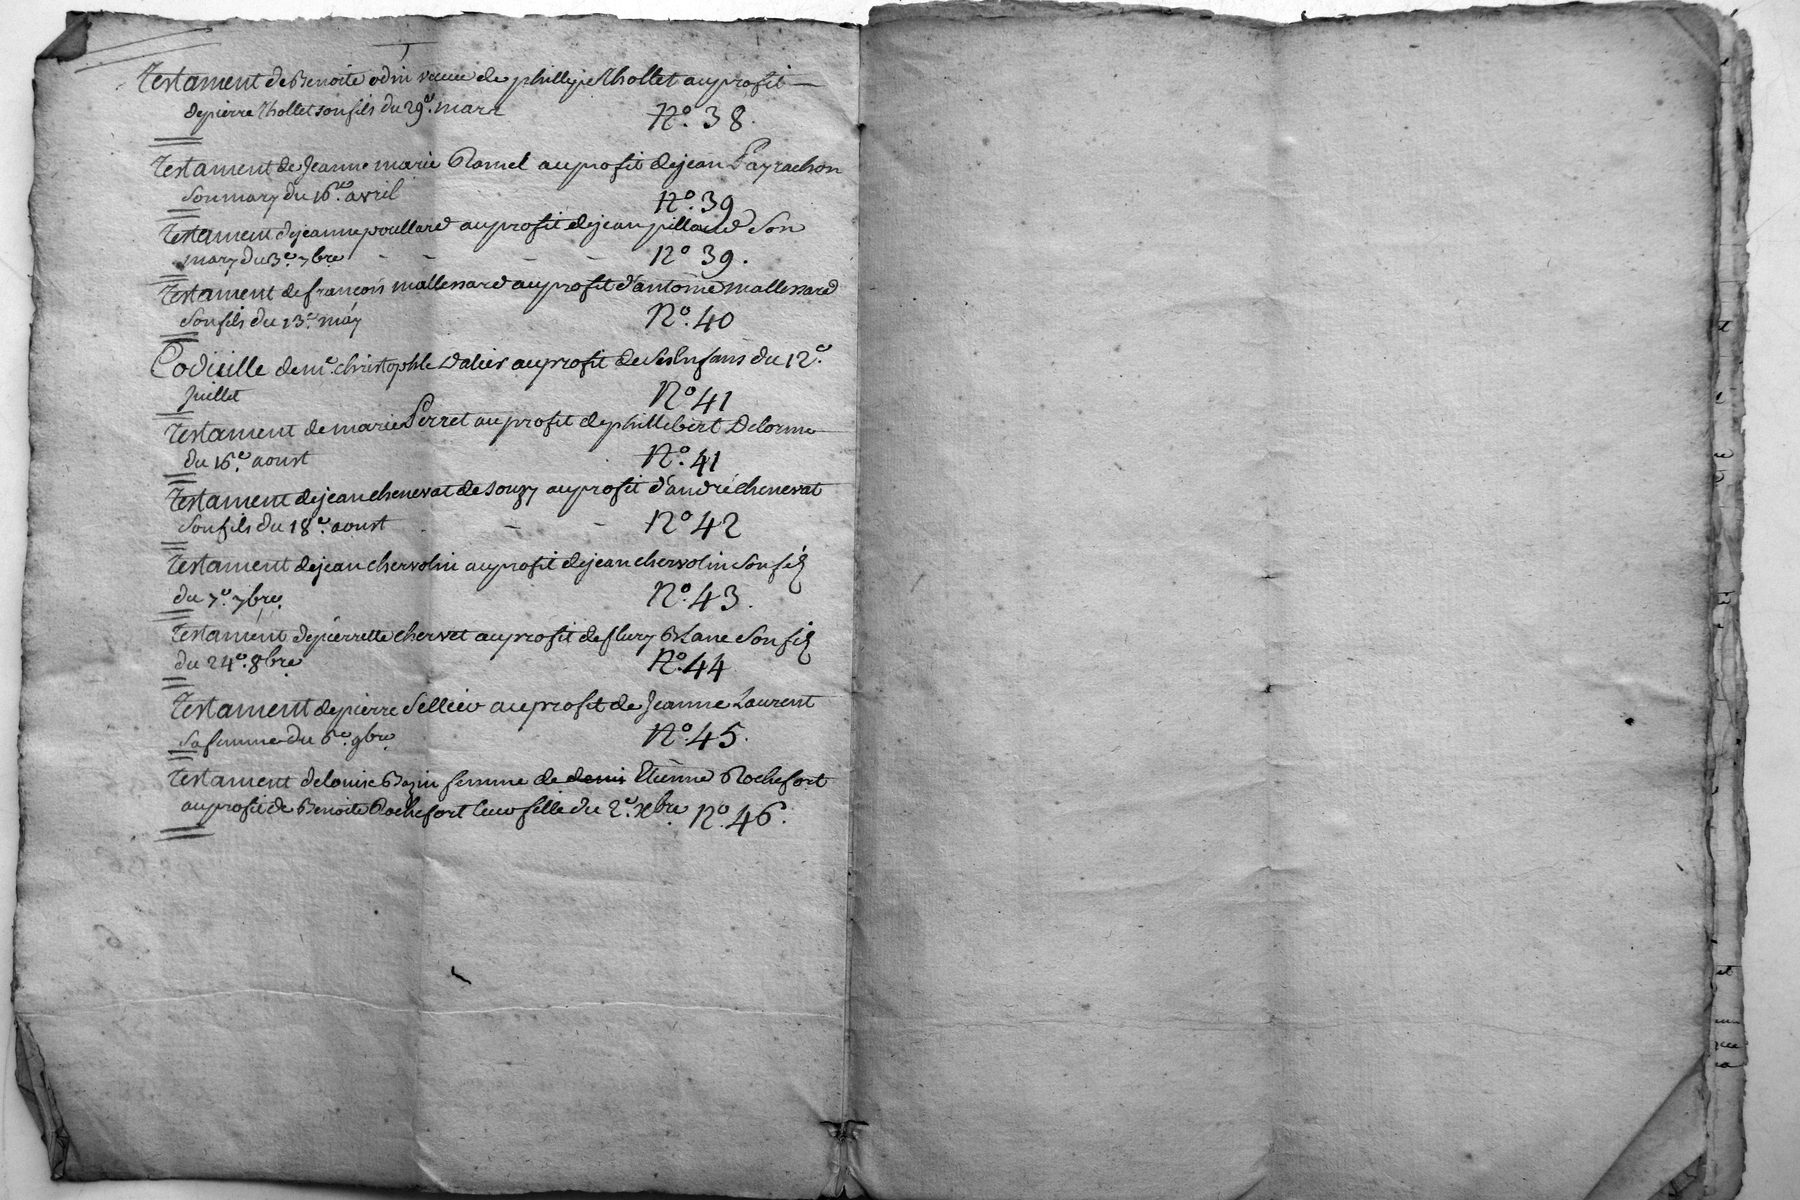 T
Testament de Benoite odin veuve de phillipe Thollet au profit
de pierre Thollet son fils du 29e. mars No. 38.
Testament de Jeanne marie Ramel au profit de jean Payrachon
Son mary du 16e. avril No. 39
Testament de jeanne poullard au profit de jean pillard Son
mary du 3e. 7bre No 39.
Testament de francois mallessard au profit d'antoine mallessard
Son fils du 13e. may No. 40
Codicille de me. christophle Valier au profit de Ses Enfans du 12e.
Juillet No 41
Testament de marie Perret au profit de phillebert Delorme
du 16e. aoust No. 41
Testament de jean chenevat de Souzy au profit d'andré chenevat
Son fils du 18e. aoust No 42
Testament de jean chervolin au profit de jean chervolin Son fils
du 7e. 7bre. No. 43.
Testament de pierrette chervet au profit de fleury Blanc Son fils
du 24e. 8bre No. 44
Testament de pierre Sellier au profit de Jeanne Laurent
Sa femme du 6e. 9bre No. 45.
Testament de louise Bazin femme de denis Etienne Rochefort
au profit de Benoite Rochefort leur fille du 2e. Xbre No. 46.